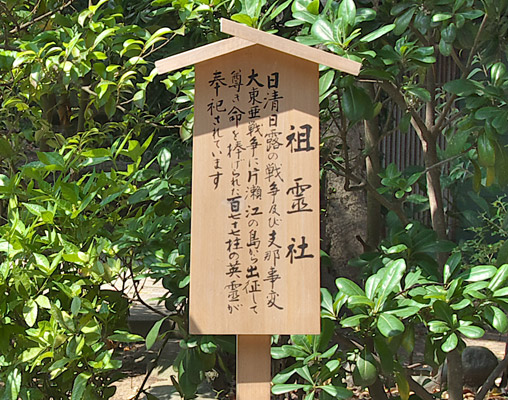 祖霊社
日清日露の戦争及び支那事変
大東亜戦争に片瀬江の島から出征して
尊き命を捧げられた百七十七柱の英霊が
奉祀されています